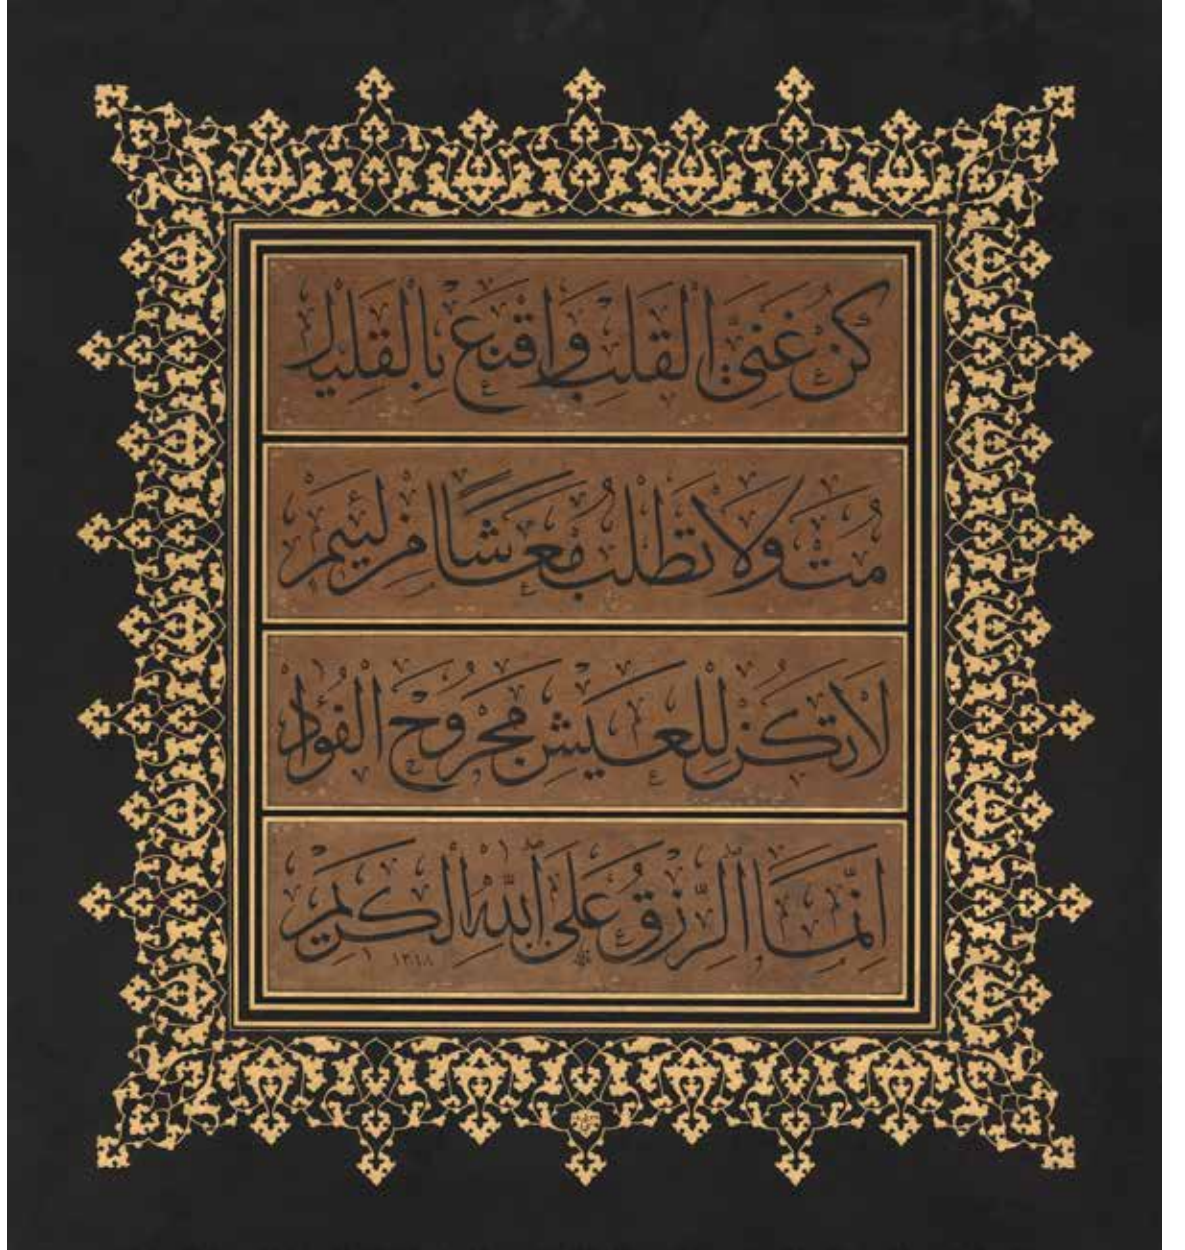 كُنْ غَنِيَّ الْقَلْبِ وَاقْنَعْ بِالْقَلِيلِ
مُتْ وَلَا تَطْلُبْ مَعَاشًا مِنْ لَئِيمٍ
لَا تَكُنْ لِلْعَيْشِ مَجْرُوحَ الْفُؤَادِ
إِنَّمَا الرِّزْقُ عَلَى اللهِ الْكَرِيمِ